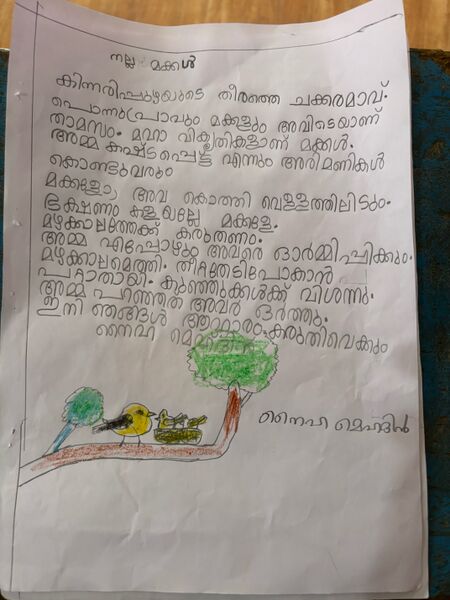 നല്ല മക്കൾ
കിന്നരിപ്പുഴയുടെ തീരത്തെ ചക്കരമാവ്.
പൊന്നുപ്രാവും മക്കളും അവിടെയാണ്
താമസം. മഹാ വികൃതികളാണ് മക്കൾ.
അമ്മ കഷ്ടപ്പെട്ട് എന്നും അരിമണികൾ
കൊണ്ടുവരും
മക്കളോ, അവ കൊത്തി വെള്ളത്തിലിടും.
ഭക്ഷണം കളയല്ലേ മക്കളേ.
മഴക്കാലത്തേക്ക് കരുതണം.
അമ്മ എപ്പോഴും അവരെ ഓർമ്മിപ്പിക്കും.
മഴക്കാലമെത്തി. തീറ്റതേടിപോകാൻ
പറ്റാതായി. കുഞ്ഞുങ്ങൾക്ക് വിശന്നു.
അമ്മ പറഞ്ഞത് അവർ ഓർത്തു.
ഇനി ഞങ്ങൾ ആഹാരം കരുതിവെക്കും
നൈഹ
നൈഹ മെഹദിൻ